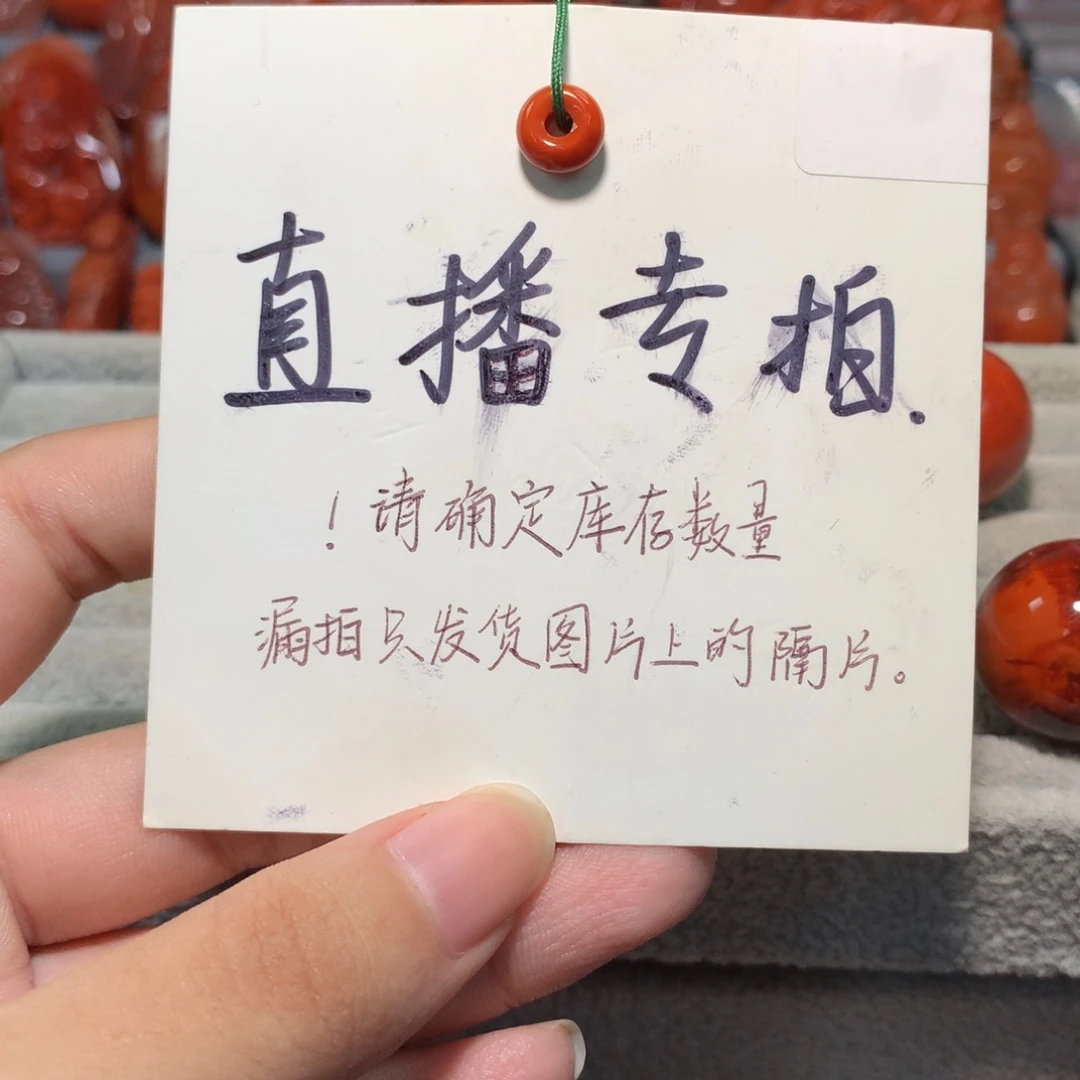 直播专拍.
!请确定库存数量
漏拍只发货图片上的隔片。